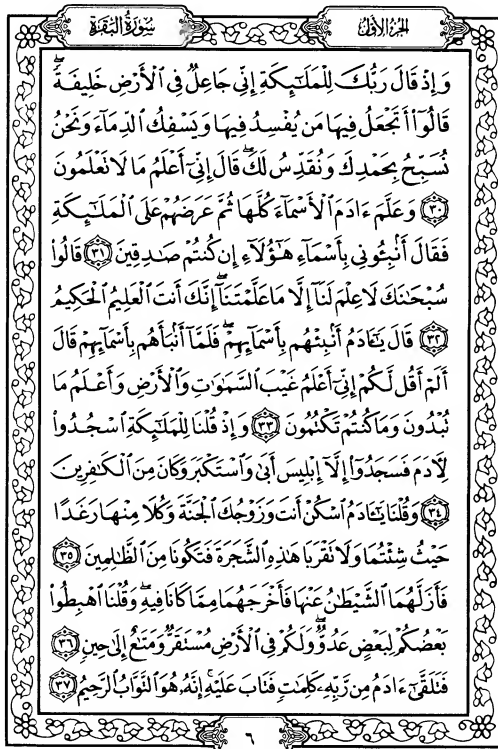 الجزء الأول
سورة البقرة
وَإِذْ قَالَ رَبُّكَ لِلْمَلَٰٓئِكَةِ إِنِّي جَاعِلٌ فِي ٱلْأَرْضِ خَلِيفَةً ۖ
قَالُوٓا۟ أَتَجْعَلُ فِيهَا مَن يُفْسِدُ فِيهَا وَيَسْفِكُ ٱلدِّمَآءَ وَنَحْنُ
نُسَبِّحُ بِحَمْدِكَ وَنُقَدِّسُ لَكَ ۖ قَالَ إِنِّيٓ أَعْلَمُ مَا لَا تَعْلَمُونَ
٣٠ وَعَلَّمَ ءَادَمَ ٱلْأَسْمَآءَ كُلَّهَا ثُمَّ عَرَضَهُمْ عَلَى ٱلْمَلَٰٓئِكَةِ
فَقَالَ أَنۢبِـُٔونِي بِأَسْمَآءِ هَٰٓؤُلَآءِ إِن كُنتُمْ صَٰدِقِينَ ٣١ قَالُوا۟
سُبْحَٰنَكَ لَا عِلْمَ لَنَآ إِلَّا مَا عَلَّمْتَنَآ ۖ إِنَّكَ أَنتَ ٱلْعَلِيمُ ٱلْحَكِيمُ
٣٢ قَالَ يَٰٓـَٔادَمُ أَنۢبِئْهُم بِأَسْمَآئِهِمْ ۖ فَلَمَّآ أَنۢبَأَهُم بِأَسْمَآئِهِمْ قَالَ
أَلَمْ أَقُل لَّكُمْ إِنِّيٓ أَعْلَمُ غَيْبَ ٱلسَّمَٰوَٰتِ وَٱلْأَرْضِ وَأَعْلَمُ مَا
تُبْدُونَ وَمَا كُنتُمْ تَكْتُمُونَ ٣٣ وَإِذْ قُلْنَا لِلْمَلَٰٓئِكَةِ ٱسْجُدُوا۟
لِـَٔادَمَ فَسَجَدُوٓا۟ إِلَّآ إِبْلِيسَ أَبَىٰ وَٱسْتَكْبَرَ وَكَانَ مِنَ ٱلْكَٰفِرِينَ
٣٤ وَقُلْنَا يَٰٓـَٔادَمُ ٱسْكُنْ أَنتَ وَزَوْجُكَ ٱلْجَنَّةَ وَكُلَا مِنْهَا رَغَدًا
حَيْثُ شِئْتُمَا وَلَا تَقْرَبَا هَٰذِهِ ٱلشَّجَرَةَ فَتَكُونَا مِنَ ٱلظَّٰلِمِينَ ٣٥
فَأَزَلَّهُمَا ٱلشَّيْطَٰنُ عَنْهَا فَأَخْرَجَهُمَا مِمَّا كَانَا فِيهِ ۖ وَقُلْنَا ٱهْبِطُوا۟
بَعْضُكُمْ لِبَعْضٍ عَدُوٌّ ۖ وَلَكُمْ فِي ٱلْأَرْضِ مُسْتَقَرٌّ وَمَتَٰعٌ إِلَىٰ حِينٍ ٣٦
فَتَلَقَّىٰٓ ءَادَمُ مِن رَّبِّهِۦ كَلِمَٰتٍ فَتَابَ عَلَيْهِ ۚ إِنَّهُۥ هُوَ ٱلتَّوَّابُ ٱلرَّحِيمُ ٣٧
٦